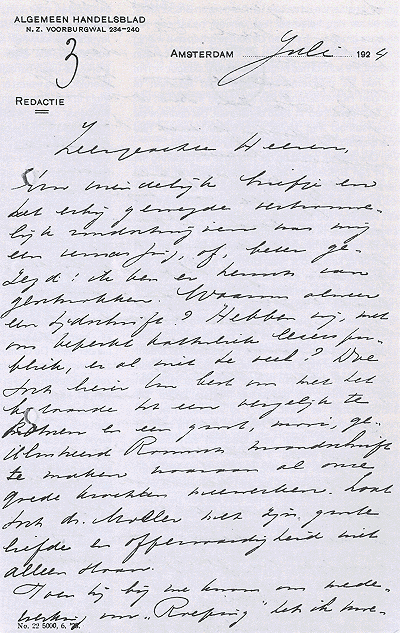 ALGEMEEN HANDELSBLAD
N. Z. VOORBURGWAL 234-240
3
AMSTERDAM Juli 1924
REDACTIE
Zeergeachte Heeren,
Uw vriendelijk briefje en
het erbij gevoegde vertrouwe-
lijk rondschrijven was mij
een verrassing, of, beter ge-
zegd: ik ben er hevig van
geschrokken. Waarom alweer
een tijdschrift? Hebben wij, met
ons beperkt katholiek lezerspu-
bliek, er al niet te veel? Doe
toch liever Uw best om met het
bestaande tot een vergelijk te
komen en een groot, mooi, ge-
ïllustreerd Roomsch maandschrift
te maken waaraan al onze
goede krachten meewerken. Laat
toch dr. Moller met zijn groote
liefde en offervaardigheid niet
alleen staan.
Toen hij bij me kwam om mede-
werking voor "Roeping" heb ik
No. 22 5000, 6,